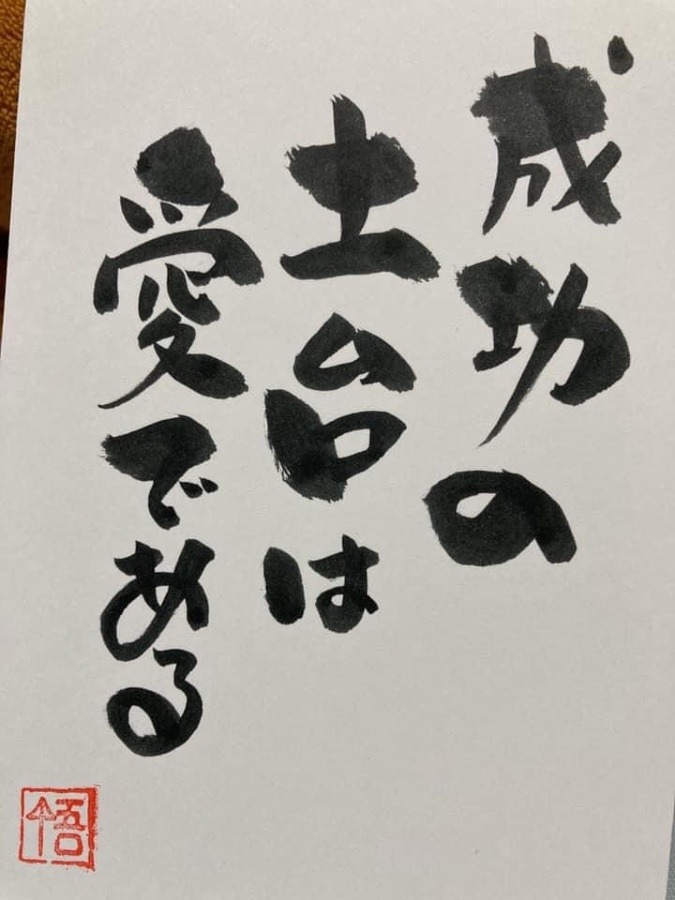 成功の
土台は
愛である
悟